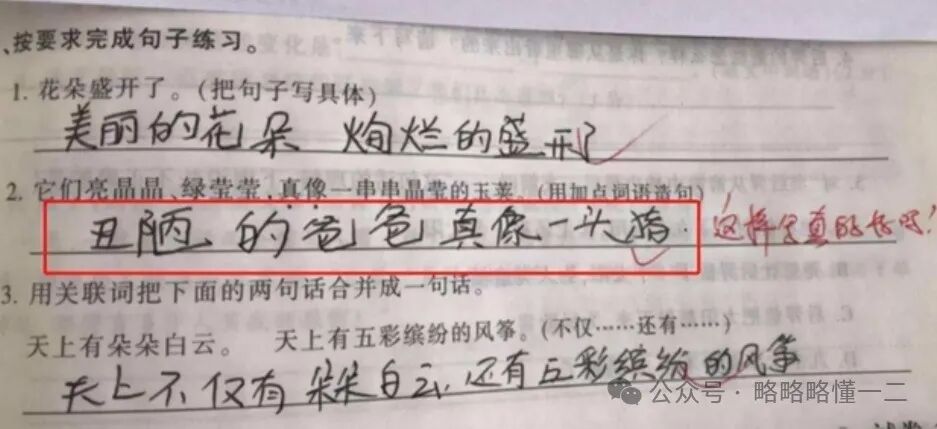 、按要求完成句子练习。
1. 花朵盛开了。(把句子写具体)
美丽的花朵 绚烂的盛开
2. 它们亮晶晶、绿莹莹,真像一串串晶莹的玉荚。(用加点词语造句)
丑陋的爸爸真像一头猪.
这样写真的好吗!
3. 用关联词把下面的两句话合并成一句话。
天上有朵朵白云。 天上有五彩缤纷的风筝。(不仅……还有……)
天上不仅有朵朵白云 还有五彩缤纷的风筝
公众号·略略略懂一二